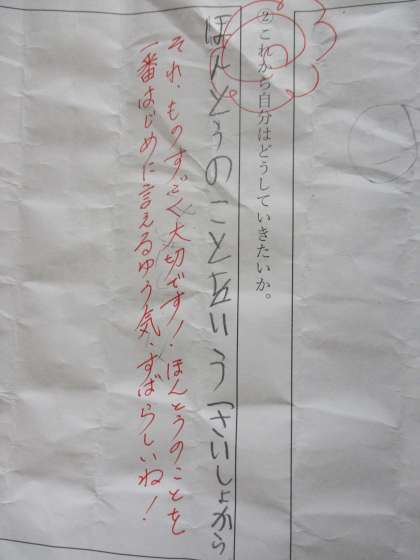 ②これから自分はどうしていきたいか。
ほんとうのことをいう さいしょから
それ、ものすごく大切です!ほんとうのことを
一番はじめに言えるゆう気、すばらしいね!